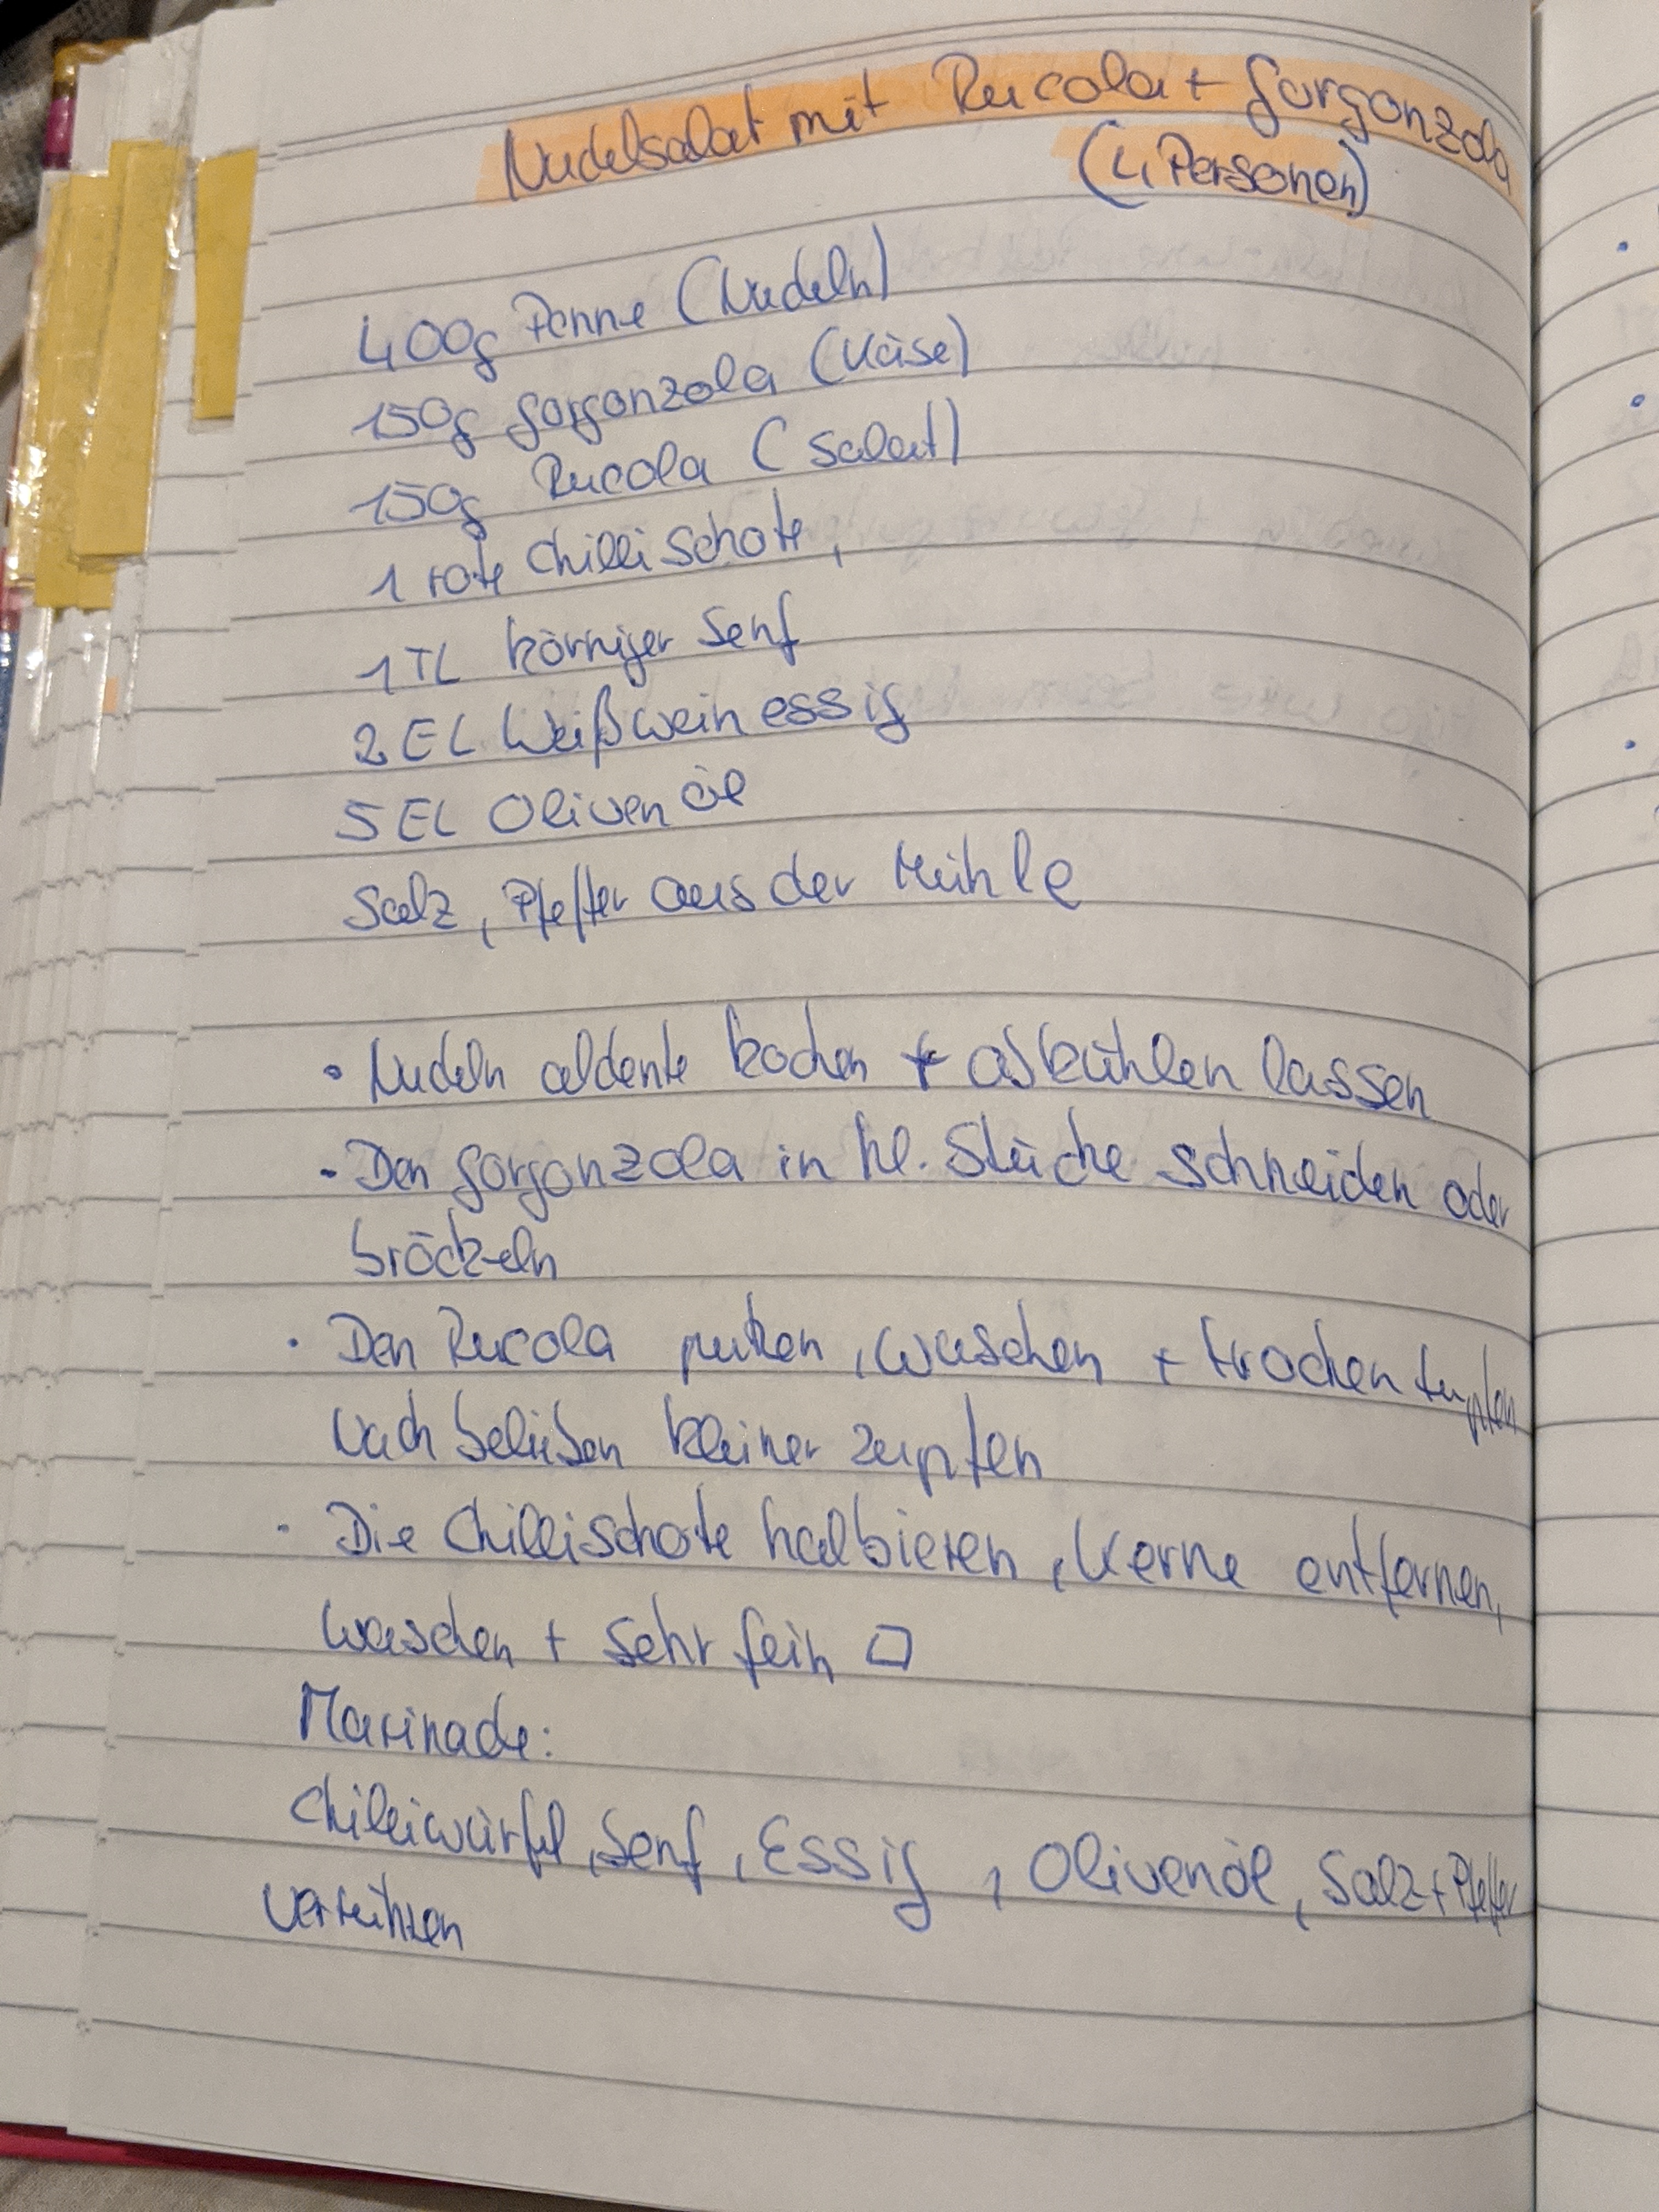 Nudelsalat mit Rucola + Gorgonzola
(4 Personen)
400g Penne (Nudeln)
150g Gorgonzola (Käse)
150g Rucola (Salat)
1 rote Chillischote,
1 TL körniger Senf
2 EL Weißweinessig
5 EL Olivenöl
Salz, Pfeffer aus der Mühle
• Nudeln aldente kochen + abkühlen lassen
• Den Gorgonzola in kl. Stücke schneiden oder
bröckeln
• Den Rucola putzen, waschen + trocken tupfen
Nach belieben kleiner zupfen
• Die Chillischote halbieren, Kerne entfernen,
waschen + sehr fein ▱
Marinade:
Chilliwürfel, Senf, Essig, Olivenöl, Salz + Pfeffer
verrühren